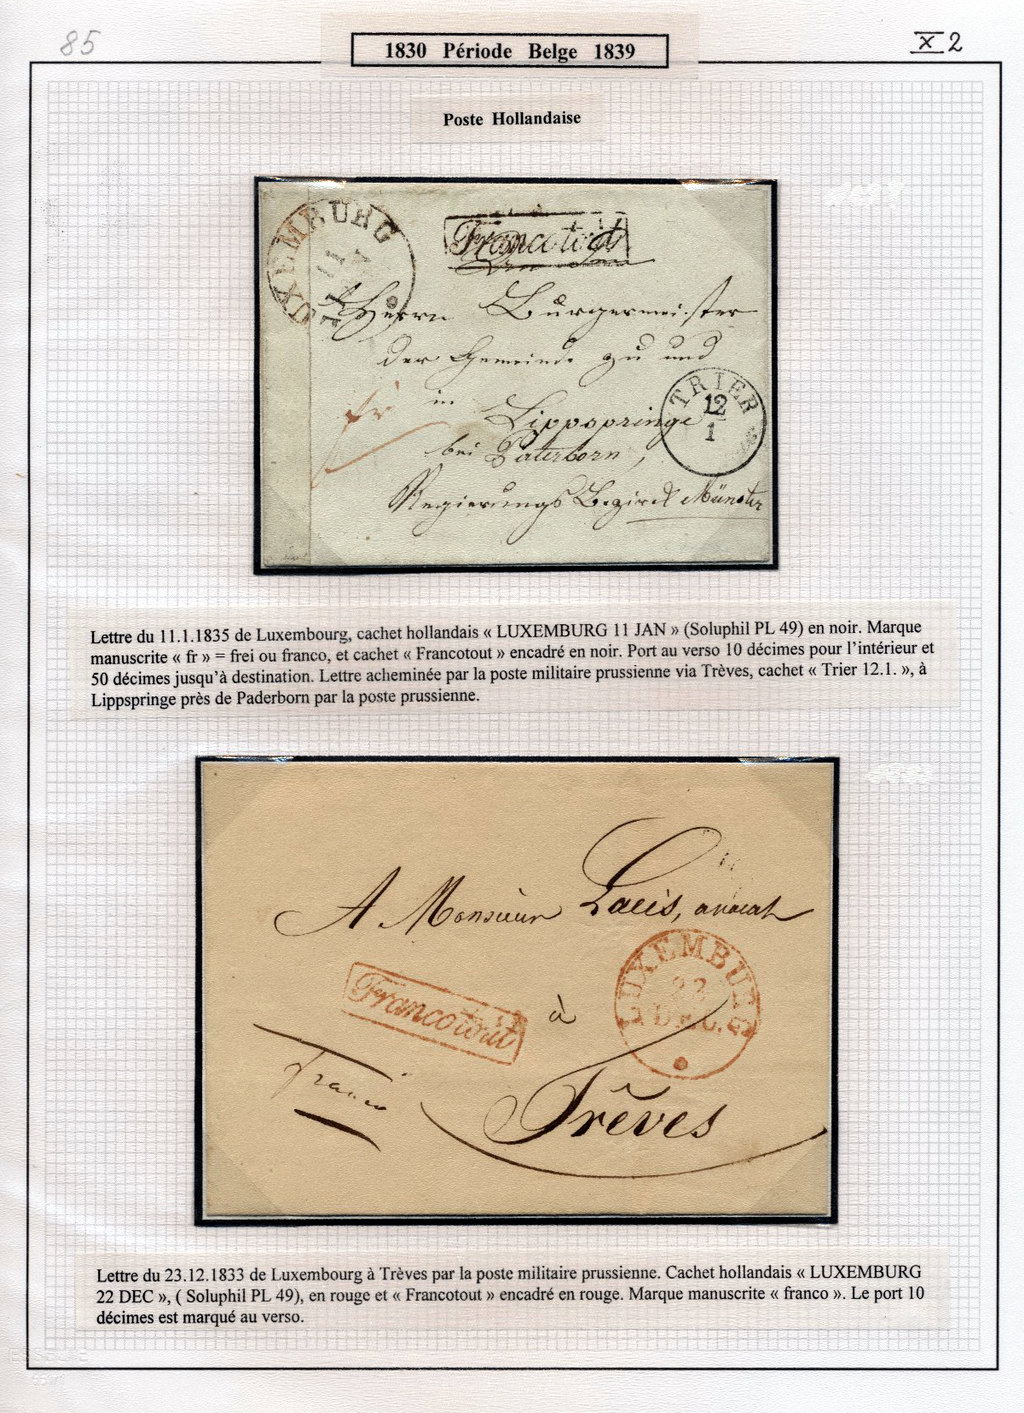 85
X 2
1830 Période Belge 1839
Poste Hollandaise
LUXEMBURG
11
Francotout
Herrn Burgermeister
der Gemeinde zu und
fr
in Lippspringe
bei Paterborn,
Regierungs Bezirck Münster
TRIER
12
1
Lettre du 11.1.1835 de Luxembourg, cachet hollandais « LUXEMBURG 11 JAN » (Soluphil PL 49) en noir. Marque
manuscrite « fr » = frei ou franco, et cachet « Francotout » encadré en noir. Port au verso 10 décimes pour l'intérieur et
50 décimes jusqu'à destination. Lettre acheminée par la poste militaire prussienne via Trèves, cachet « Trier 12.1. », à
Lippspringe près de Paderborn par la poste prussienne.
A Monsieur Lacis, avocat
LUXEMBURG
DEC.
Francotout
à
franco
Trêves
Lettre du 23.12.1833 de Luxembourg à Trèves par la poste militaire prussienne. Cachet hollandais « LUXEMBURG
22 DEC », ( Soluphil PL 49), en rouge et « Francotout » encadré en rouge. Marque manuscrite « franco ». Le port 10
décimes est marqué au verso.